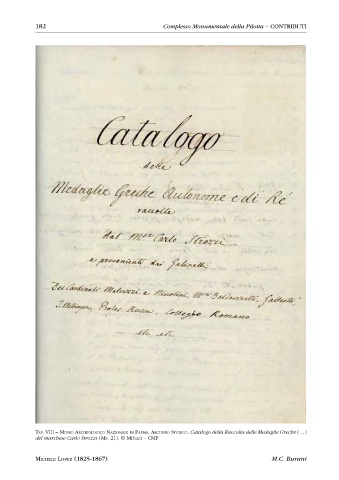 182
Complesso Monumentale della Pilotta – CONTRIBUTI
Catalogo
delle
Medaglie Greche Autonome e di Ré
raccolte
dal M.se Carlo Strozzi
e provenienti dai Gabinetti
Dei Cardinali e M.se Galeotti
Profes. Collegio Romano
etc. etc.
TAV. VIII – MUSEO ARCHEOLOGICO NAZIONALE DI PARMA. ARCHIVIO STORICO. Catalogo della Raccolta delle Medaglie Greche (...)
del marchese Carlo Strozzi (Ms. 21). © MiBact – CMP.
MICHELE LOPEZ (1825-1867)
M.C. Burani